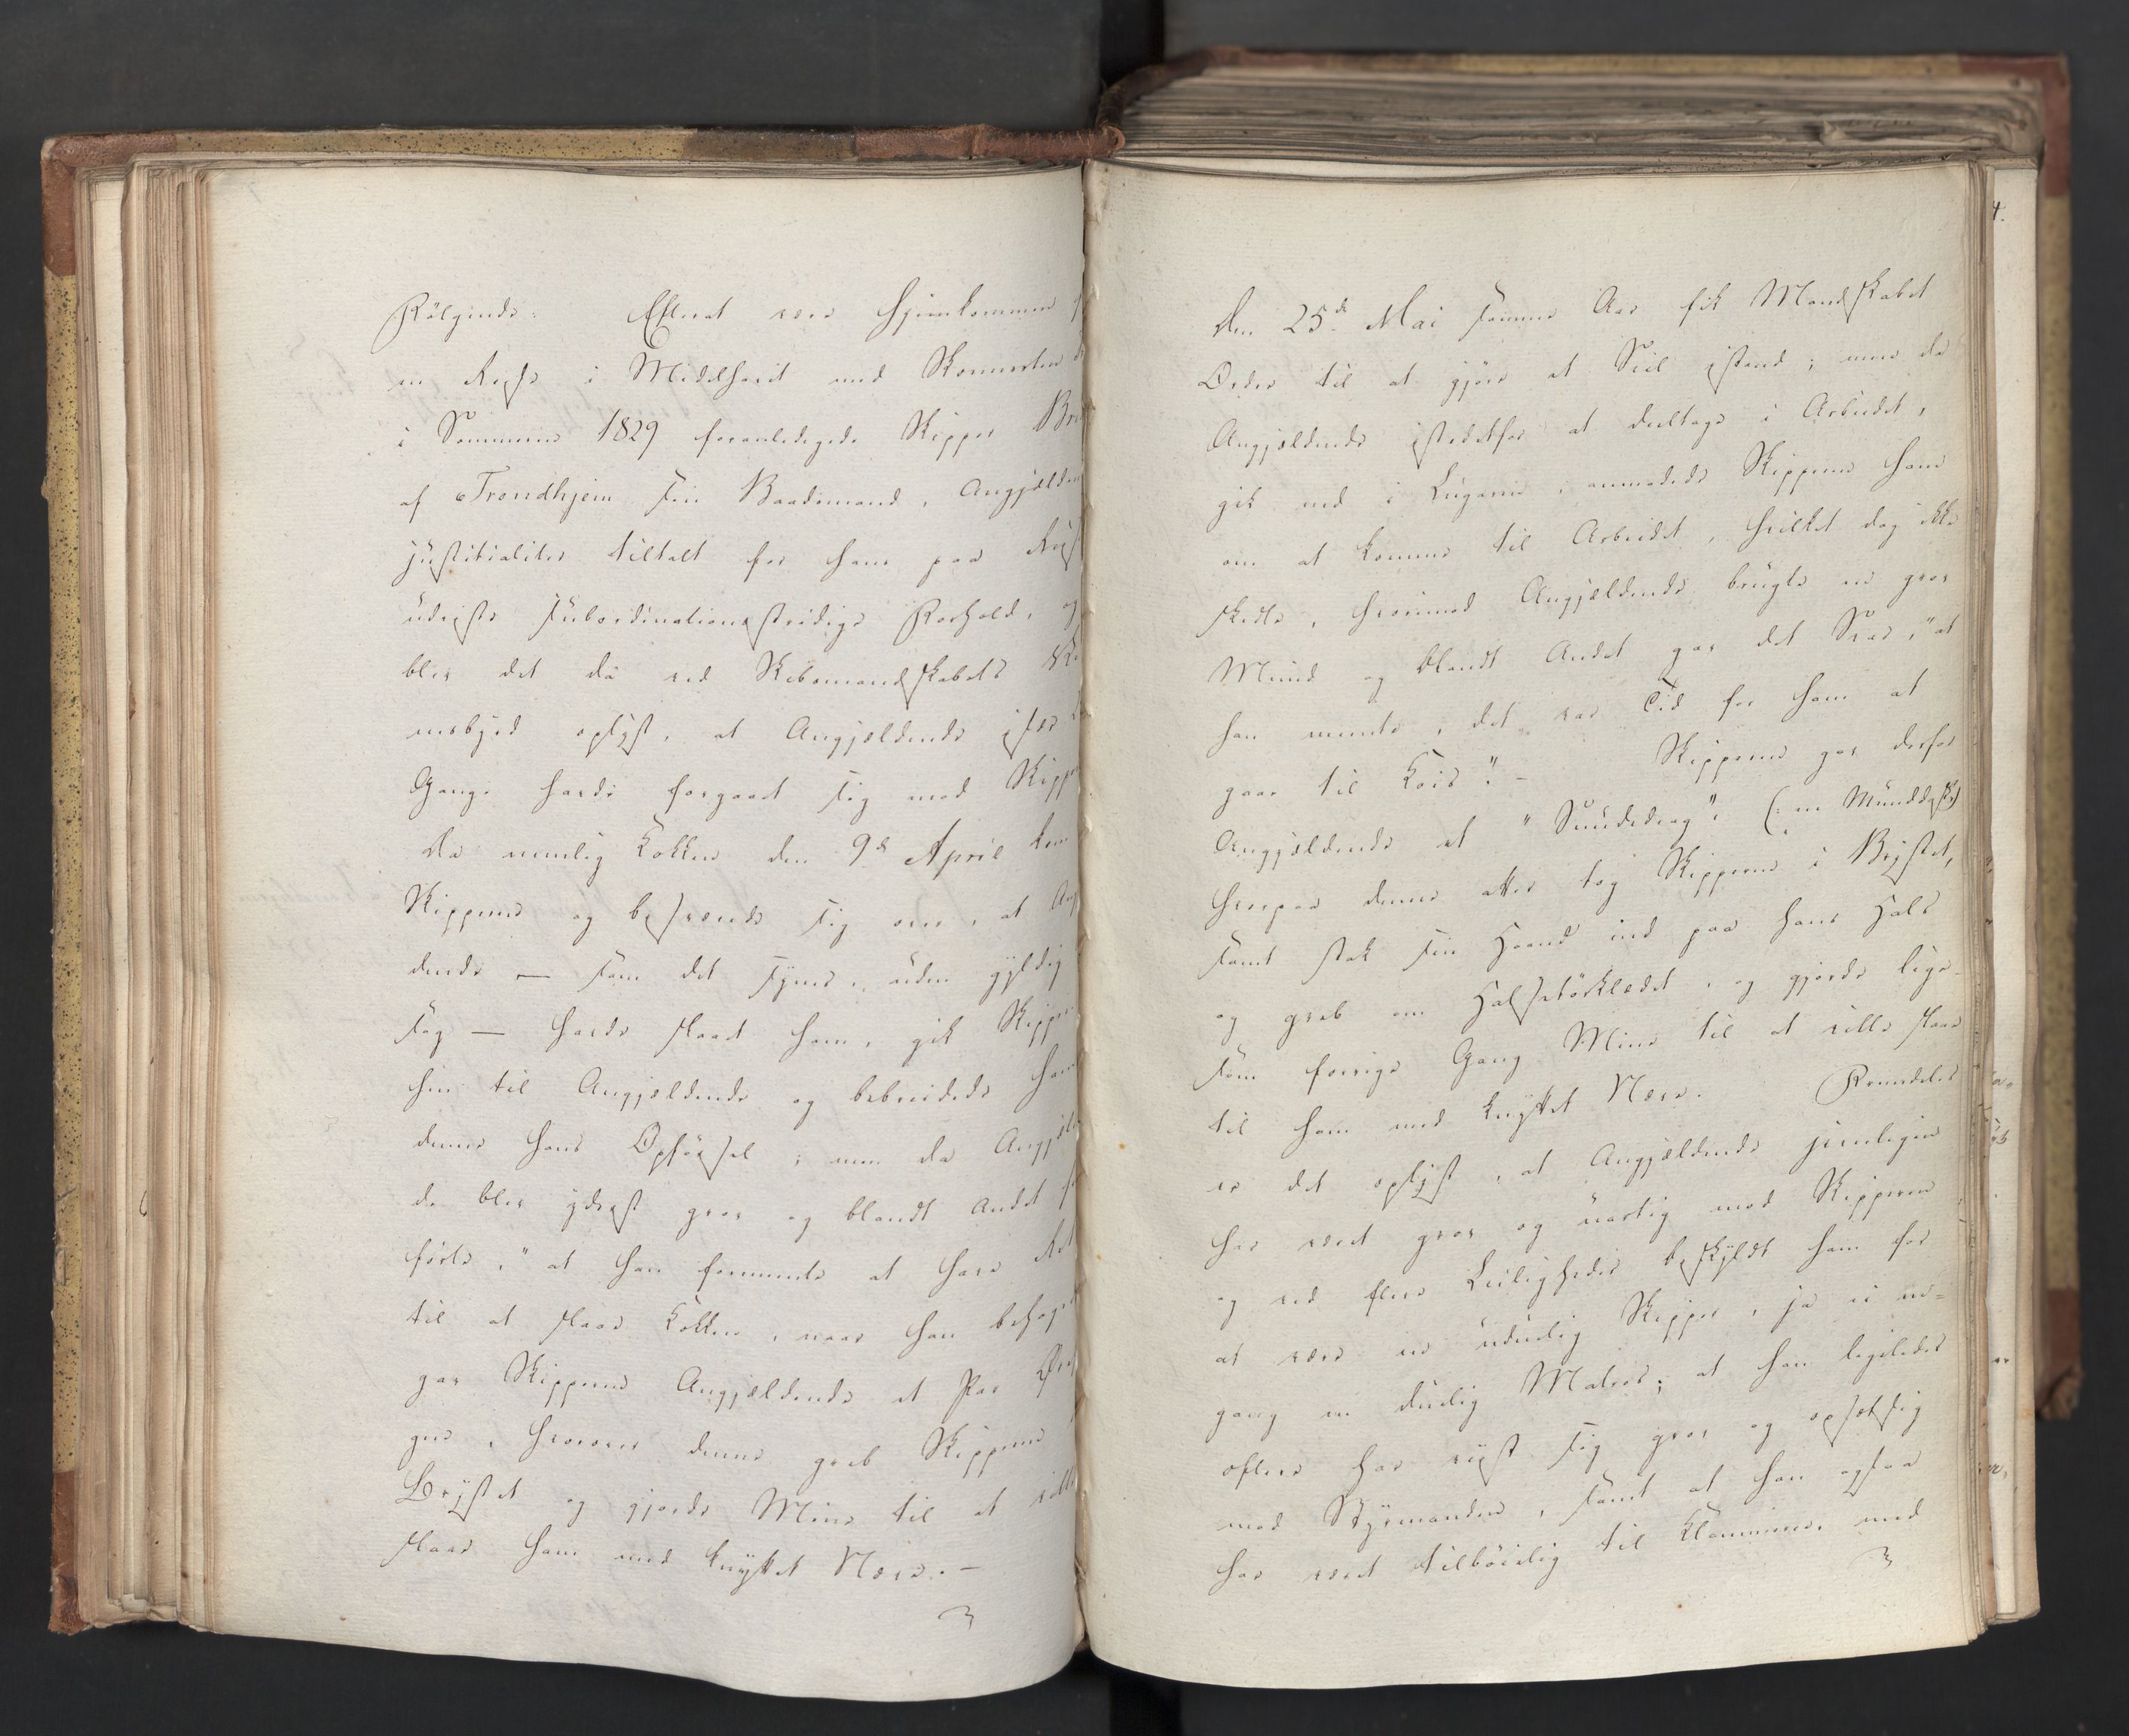 Følgende: Efterat være hjemkommen
en Reise i Middelhavet med Skonnerten
i Sommeren 1829 foranledigede Skipper
af Trondhjem sin Baadsmand, Angjælden
justitialiter tiltalt for hans paa
udviste subordinationsstridige Forhold, og
blev det da ved Skibsmandskabets
nesbyrd oplyst, at Angjældende især
Gange havde forgaaet sig mod Skippe
Da nemlig Kokken den 9de April kom
Skipperen og besværede sig over, at Ang
dende — som det synes, uden gyldig
sag — havde slaaet ham, gik Skipper
hen til Angjældende og bebreidede ham
denne hans Opførsel; men da Angjæl
de blev yderst grov og blandt Andet
førte, "at han formente at have Ret
til at slaae Kokken, naar han behage
gav Skipperen Angjældende et Par
gne, hvorover denne greb Skipperen
Brystet og gjorde Mine til at ville
slaae ham med knyttet Næve. —
Den 25de Mai samme Aar fik Mandskabet
Ordre til at gjøre et Seil istand; men da
Angjældende istedetfor at deeltage i Arbeidet,
gik ned i Lugaren, anmodede Skipperen ham
om at komme til Arbeidet, hvilket dog ikke
skedte, hvorimod Angjældende brugte en grov
Mund og blandt Andet gav det Svar, "at
han meente, det var Tid for ham at
gaae til Køis". — Skipperen gav derfor
Angjældende et "Snudedrag", (: en Munddask)
hvorpaa denne atter tog Skipperen i Brystet,
samt stak sin Haand ind paa hans Hals
og greb om Halstørklædet, og gjorde lige-
som forrige Gang Mine til at ville slaae
til ham med knyttet Næve. Fremdeles
er det oplyst, at Angjældende jevnligen
har været grov og uartig mod Skipperen
og ved flere Leiligheder beskyldt ham for
at være en uduelig Skipper, ja ei en=
gang en duelig Matros; at han ligeledes
oftere har viist sig grov og opsætsig
mod Styrmanden, samt at han ogsaa
har været tilbøielig til Klammerie, med